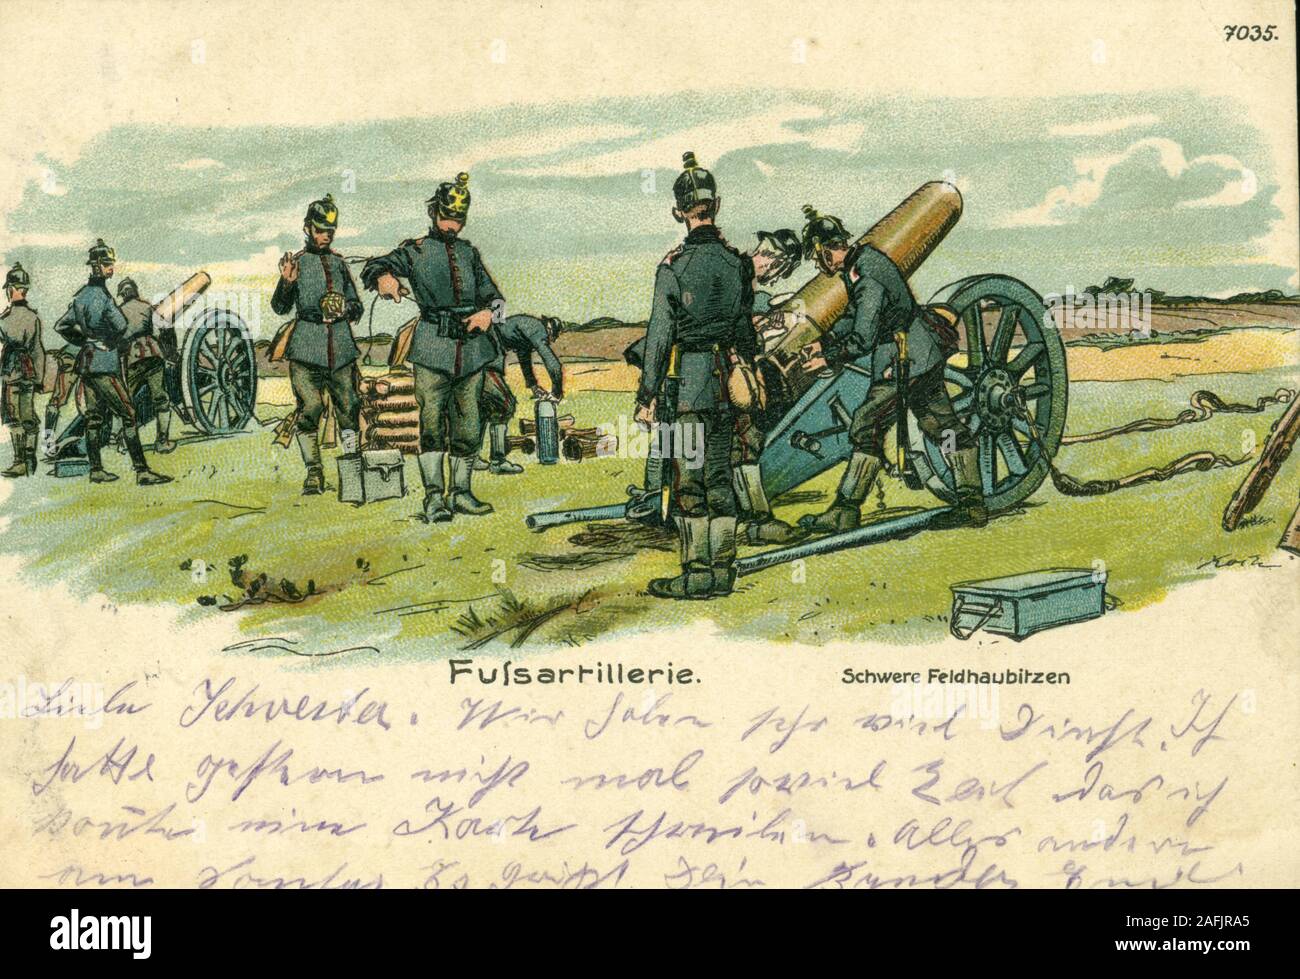 7035.
Koch
Fuſsartillerie.
Schwere Feldhaubitzen
Liebe Schwester. Wir haben sehr viel Dienst. Ich
hatte gestern nicht mal soviel Zeit das ich
konnte eine Karte schreiben. Alles andere
am Sonntag Es grüßt Dein Bruder Emil
alamy
Image ID: 2AFJRA5
www.alamy.com